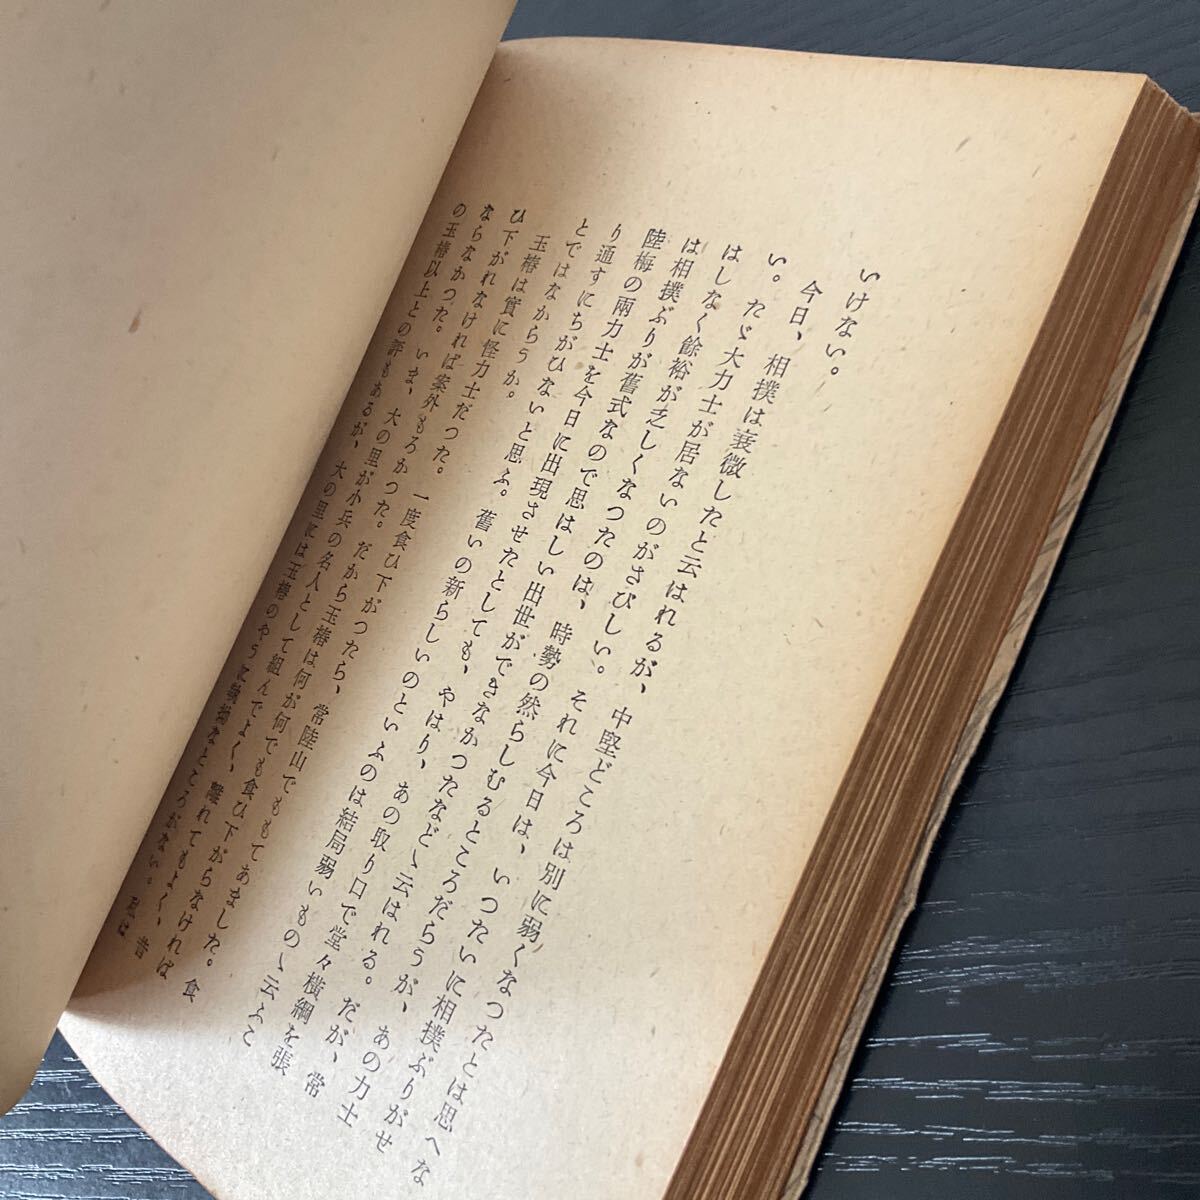 いけない。
今日、相撲は衰微したと云はれるが、中堅どころは別に弱くなつたとは思へな
い。たゞ大力士が居ないのがさびしい。それに今日は、いつたいに相撲ぶりがせ
はしなく餘裕が乏しくなつたのは、時勢の然らしむるところだらうが、あの力士
は相撲ぶりが舊式なので思はしい出世ができなかつたなどゝ云はれる。だが、常
陸梅の兩力士を今日に出現させたとしても、やはり、あの取り口で堂々横綱を張
り通すにちがひないと思ふ。舊いの新らしいのといふのは結局弱いものゝ云ふこ
とではなからうか。
玉椿は實に怪力士だつた。一度食ひ下がつたら、常陸山でももてあました。食
ひ下がれなければ案外もろかつた。だから玉椿は何が何でも食ひ下がらなければ
ならなかつた。いま、大の里が小兵の名人として組んでよく、離れてもよく、昔
の玉椿以上との評もあるが、大の里には玉椿のやうに執拗なところがない。私は